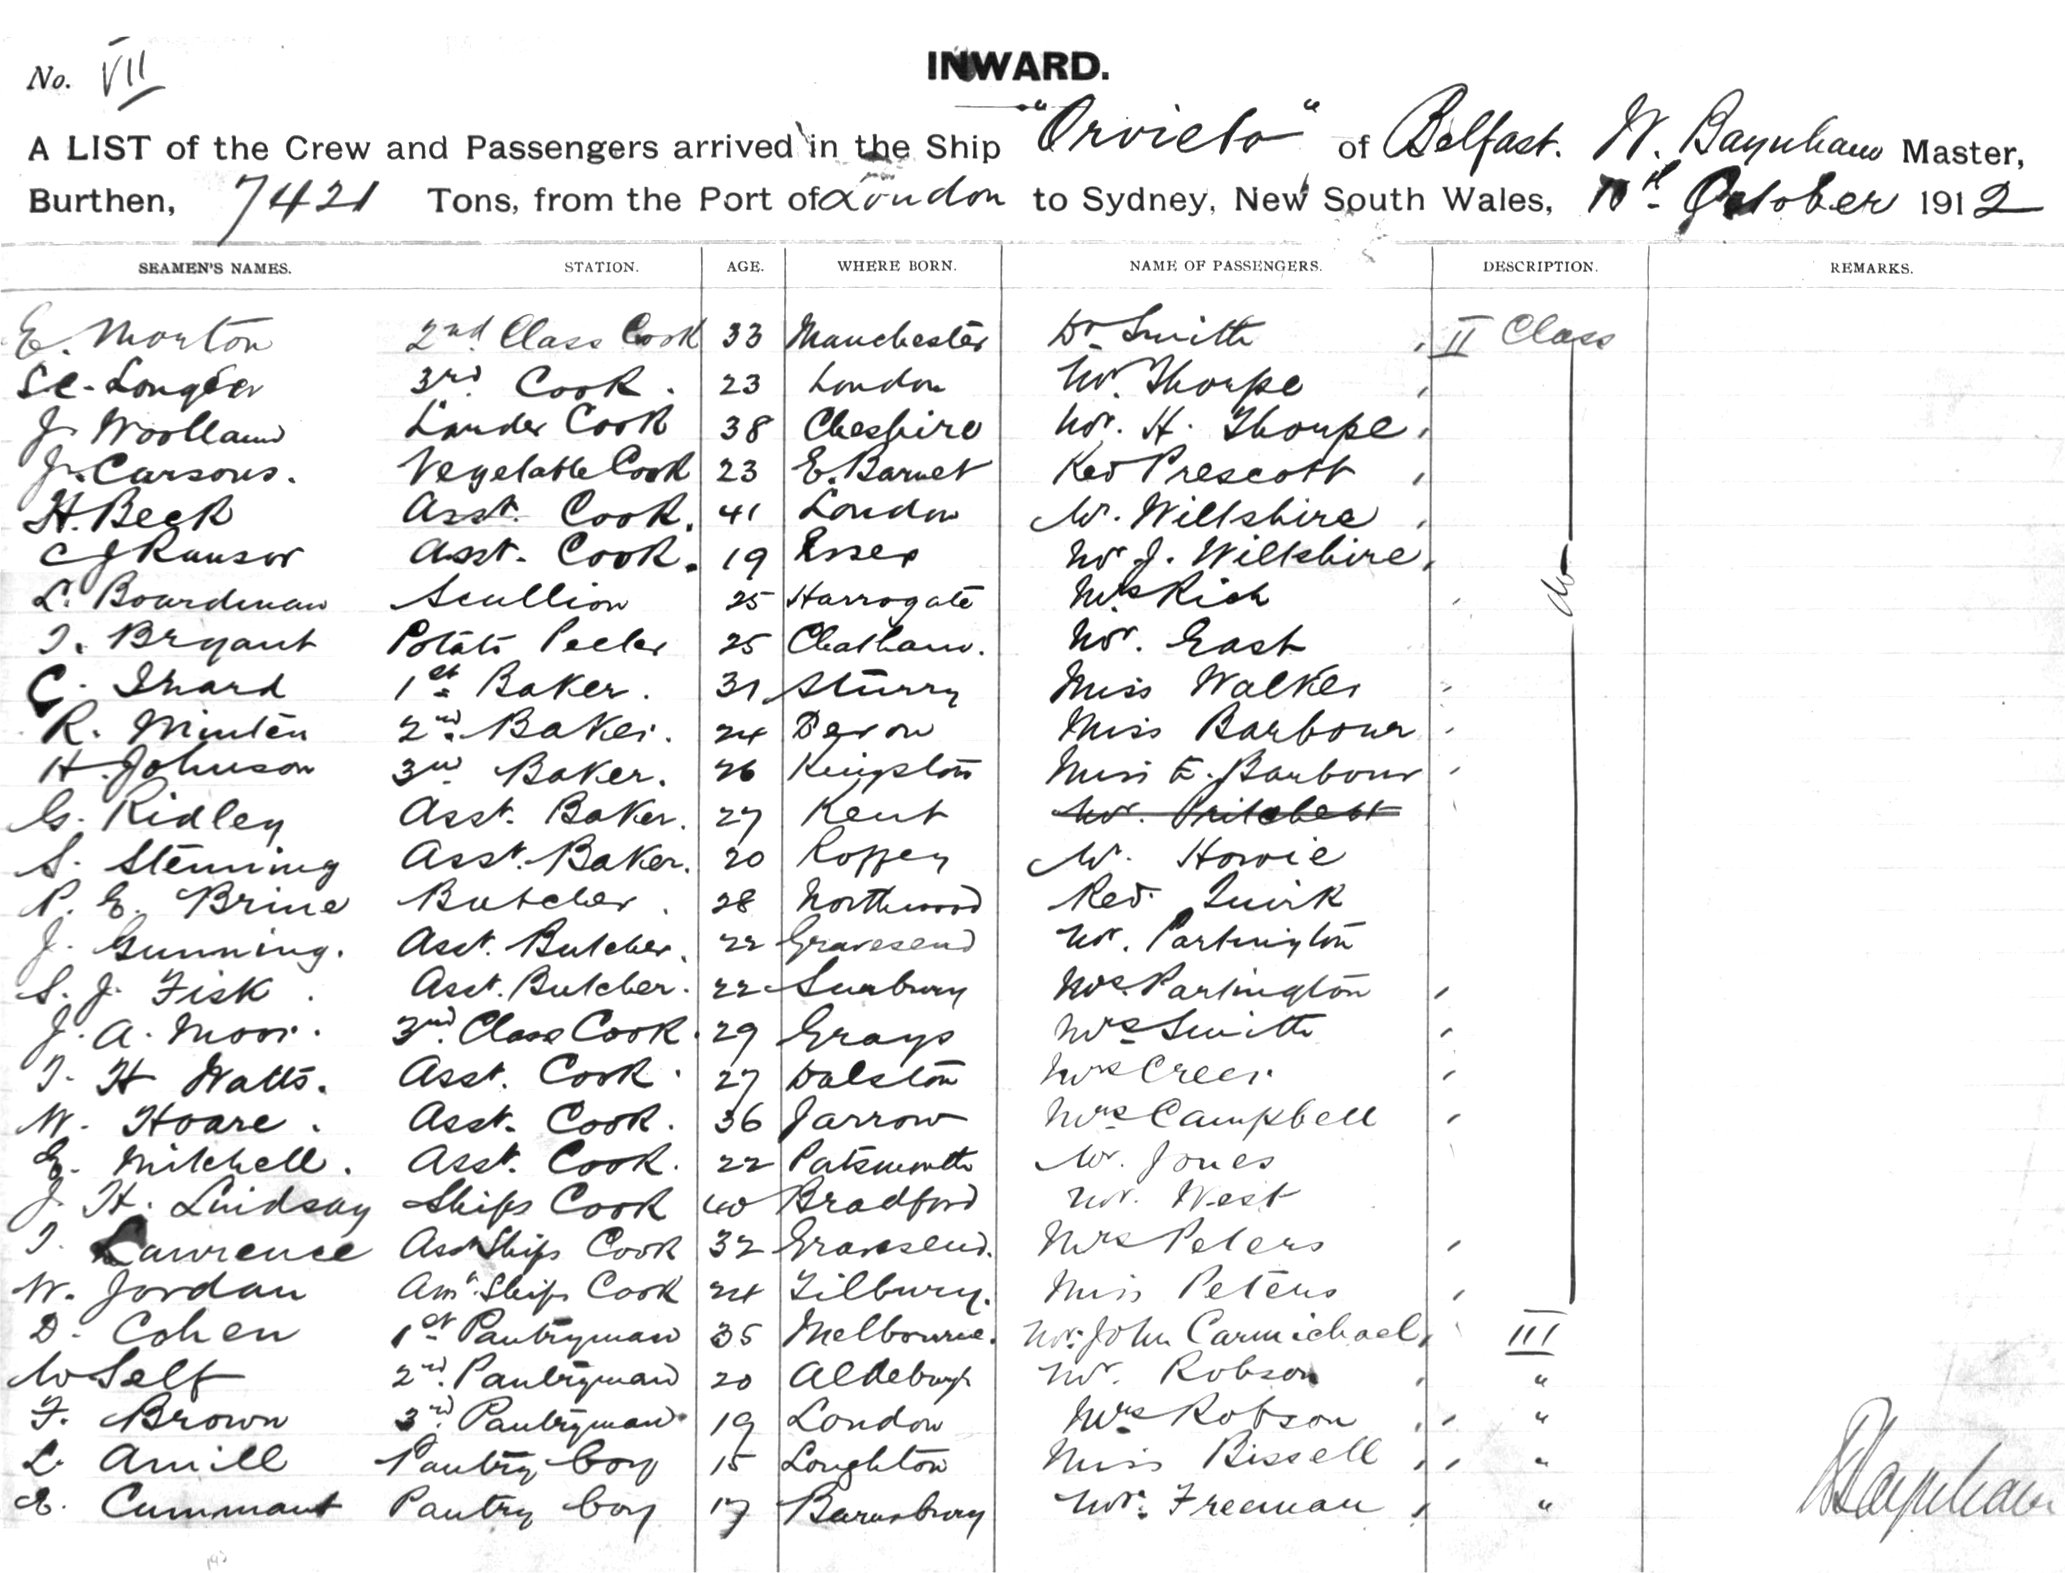 No. VII
INWARD.
A LIST of the Crew and Passengers arrived in the Ship "Orvieto" of Belfast. W. Baynham Master,
Burthen, 7421 Tons, from the Port of London to Sydney, New South Wales, October 1912
SEAMEN'S NAMES. STATION. AGE. WHERE BORN. NAME OF PASSENGERS. DESCRIPTION. REMARKS.
E. Morton 2nd Class Cook 33 Manchester Dr Smith II Class
3rd Cook. 23 London Mr. Thorpe
J. Woolland Larder Cook 38 Cheshire Mr. H. Thorpe
J. Carsons. Vegetable Cook 23 E. Barnet Rev Prescott
H. Beck Asst. Cook. 41 London Mr. Wiltshire
C J Ransor Asst. Cook. 19 Essex Mr J. Wiltshire do
L. Boardman Scullion 25 Harrogate Mrs Rich
T. Bryant Potato Peeler 25 Chatham. Mr. East
C. 1st Baker. 31 Sturry Miss Walker
R. Minten 2nd Baker. 24 Devon Miss Barbour
H. Johnson 3rd Baker. 26 Kingston Miss E. Barbour
G. Ridley Asst. Baker. 27 Kent Mr. Pritchett
S. Stenning Asst. Baker. 20 Roffey Mr. Howie
P. E. Brine Butcher. 28 Northwood Rev. Quirk
J. Gunning. Asst. Butcher. 22 Gravesend Mr. Partington
S. J. Fisk. Asst. Butcher. 22 Sunbury Mrs. Partington
J. A. Moor. 3rd. Class Cook. 29 Grays Mrs Smith
T. H Watts. Asst. Cook. 27 Dalston Mrs Creer
W. Hoare. Asst. Cook. 36 Jarrow Mrs Campbell
E. Mitchell. Asst. Cook. 22 Portsmouth Mr. Jones
J. H. Lindsay Ships Cook 40 Bradford Mr. West
T. Lawrence Asst Ships Cook 32 Gravesend. Mrs Peters
W. Jordan Asst Ships Cook 24 Tilbury. Miss Peters
D. Cohen 1st Pantryman 35 Melbourne. Mr. John Carmichael III
W Self 2nd. Pantryman 20 Aldeburgh Mr. Robson "
F. Brown 3rd. Pantryman 19 London Mrs Robson "
L. Amill Pantry boy 15 Loughton Miss Bissell "
E. Cummant Pantry boy 17 Barnsbury Mr. Freeman "
W Baynham